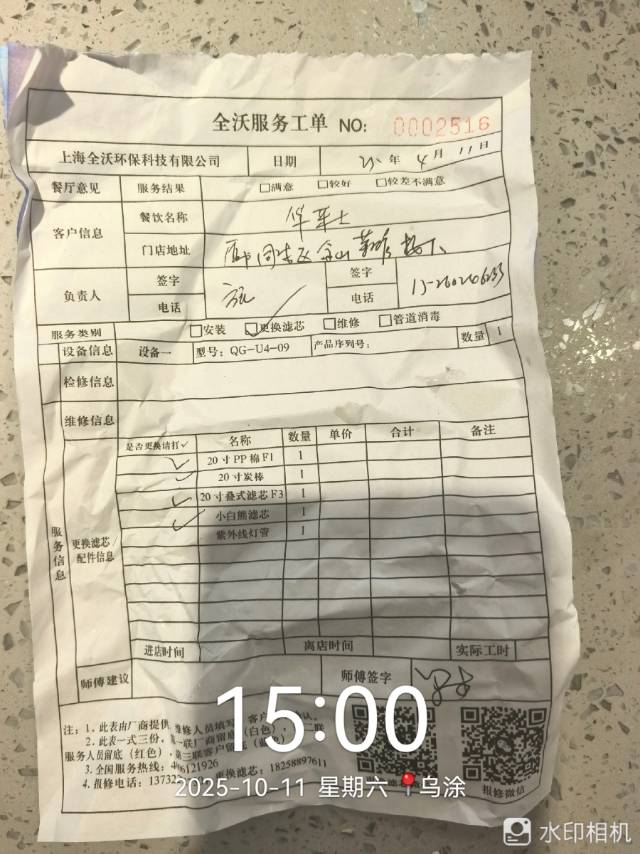 全沃服务工单 NO: 0002516
上海全沃环保科技有限公司 日期 25年 4月 11日
餐厅意见 服务结果 □满意 □较好 □较差不满意
客户信息 餐饮名称 华莱士
门店地址
负责人 签字 签字
电话 电话
服务类别 □安装 ☑更换滤芯 □维修 □管道消毒
设备信息 设备一 型号：QG-U4-09 产品序列号： 数量 1
检修信息
维修信息
服务信息 更换滤芯/配件信息
是否更换请打✓ 名称 数量 单价 合计 备注
✓ 20寸PP棉F1 1
✓ 20寸炭棒 1
✓ 20寸叠式滤芯F3 1
✓ 小白熊滤芯 1
紫外线灯管 1
进店时间 离店时间 实际工时
师傅建议 师傅签字
注：1、此表由厂商提供
2、此表一式三份，
服务人员留底（红色），
3、全国服务热线：
4、报修电话： 更换滤芯：18258897611
报修微信
15:00
2025-10-11 星期六 乌涂
水印相机